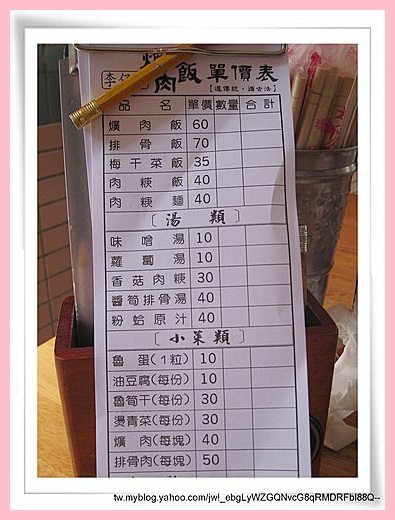 李仔
爌肉飯單價表
【遵傳統‧循古法】
品名 單價 數量 合計
爌肉飯 60
排骨飯 70
梅干菜飯 35
肉粳飯 40
肉粳麵 40
〔湯類〕
味噌湯 10
蘿蔔湯 10
香菇肉粳 30
醬筍排骨湯 40
粉蛤原汁 40
〔小菜類〕
魯蛋(1粒) 10
油豆腐(每份) 10
魯筍干(每份) 30
燙青菜(每份) 30
爌肉(每塊) 40
排骨肉(每塊) 50
tw.myblog.yahoo.com/jw!_ebgLyWZGQNvcG8qRMDRFbI88Q--